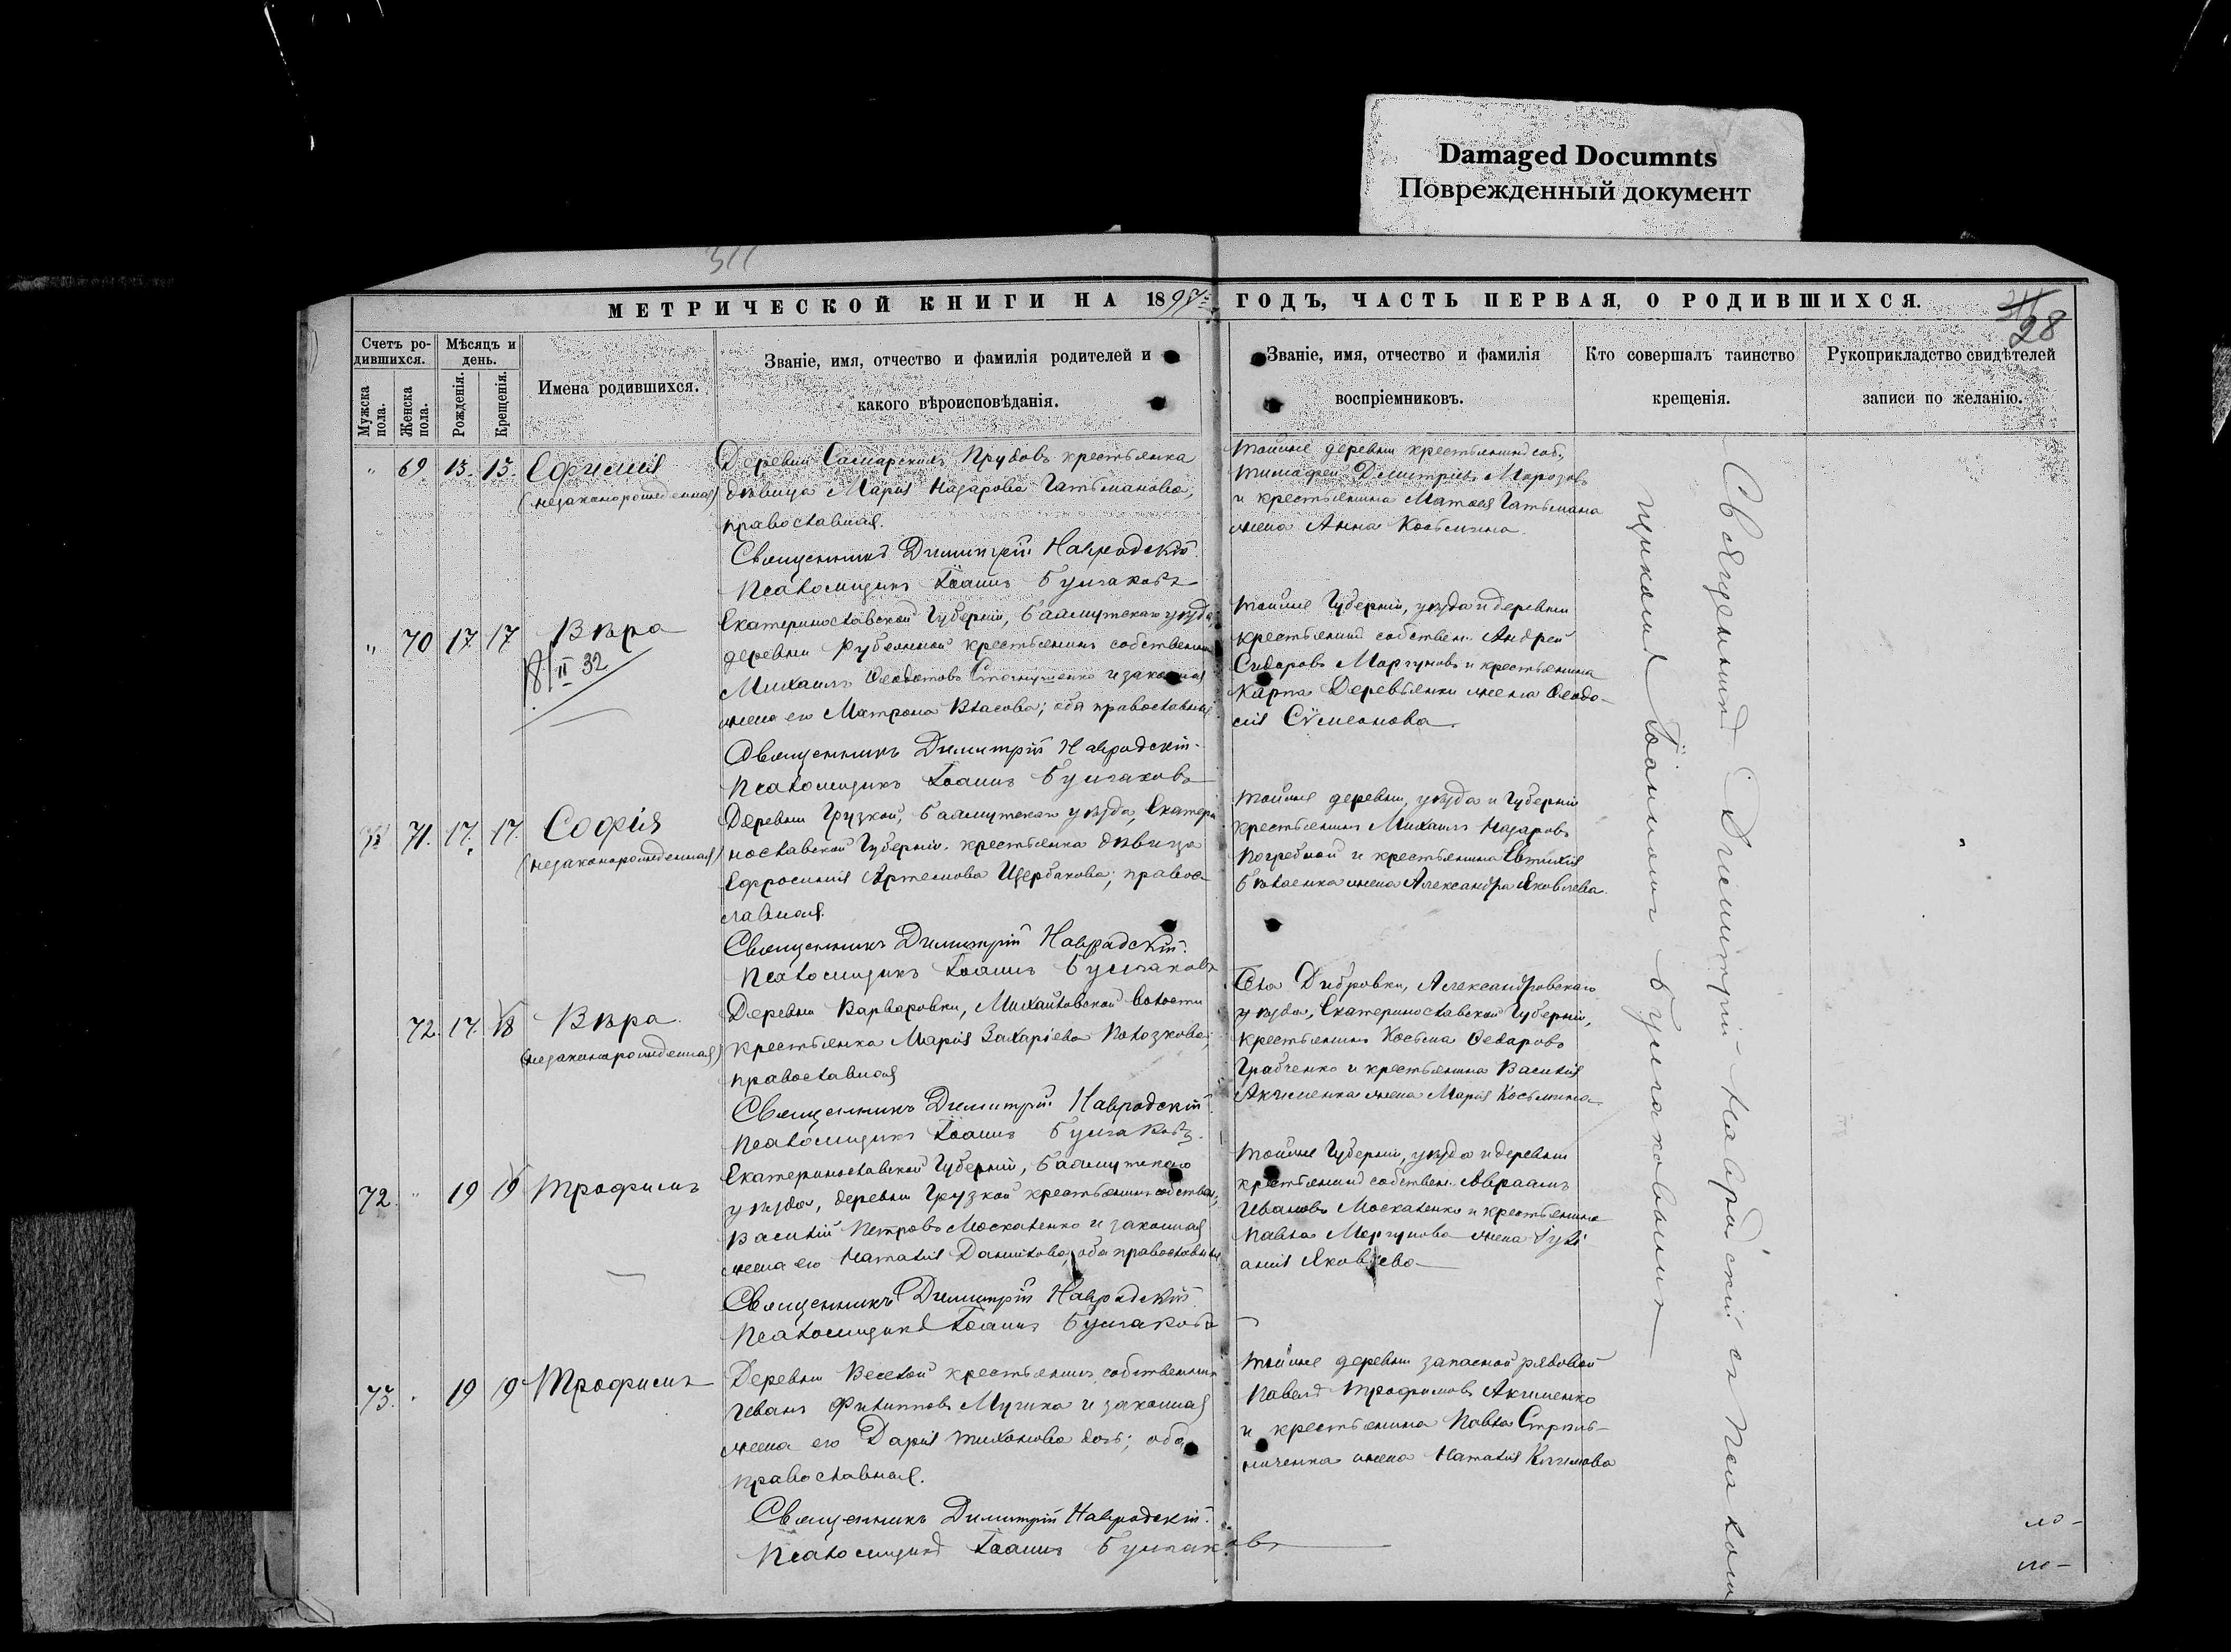 Damaged Documnts
Поврежденный документ
311
МЕТРИЧЕСКОЙ КНИГИ НА 18 ГОДЪ, ЧАСТЬ ПЕРВАЯ, О РОДИВШИХСЯ.
28
Счетъ ро-
дившихся.
Мужска
пола.
Женска
пола.
Мѣсяцъ и
день.
Рожденія.
Крещенія.
Имена родившихся.
Званіе, имя, отчество и фамилія родителей и
какого вѣроисповѣданія.
Званіе, имя, отчество и фамилія
воспріемниковъ.
Кто совершалъ таинство
крещенія.
Рукоприкладство свидѣтелей
записи по желанію.
" 69. 13. 13. Ефимія
(незаконорожденная)
Деревни Самарскихъ Прудовъ крестьянка
дѣвица Марія Назарова Гатьманова,
православная.
Священникъ Димитрій Навродскій.
Псаломщикъ Іоаннъ Булгаковъ
тойже деревни крестьянинъ соб.
Тимофей Димитріевъ Морозовъ
и крестьянина Матвея Гатьмана
жена Анна Косьмина.
" 70 17 17 Вѣра
8/II 32
Екатеринославской Губерніи, Бахмутскаго уѣзда,
деревни Рубежной крестьянинъ собственникъ
Михаилъ Ѳеодотовъ и законная
жена его Матрона Власова; оба православные
Священникъ Димитрій Навродскій.
Псаломщикъ Іоаннъ Булгаковъ
тойже Губерніи, уѣзда и деревни
крестьянинъ собствен. Андрей
Сидоровъ Моргуновъ и крестьянина
Карпа Деревянки жена Ѳеодо-
сія Сѵмеонова.
71. 17. 17. Софія
(незаконорожденная)
Деревни Грузкой, Бахмутскаго уѣзда, Екатери
нославской Губерніи. крестьянка дѣвица
Ефросинія Артемова Щербакова; правос
лавная.
Священникъ Димитрій Навродскій.
Псаломщикъ Іоаннъ Булгаковъ
тойже деревни, уѣзда и Губерніи
крестьянинъ Михаилъ Назаровъ
Погребной и крестьянина Евтихія
Бѣлаенка жена Александра Яковлева.
72. 17. 18 Вѣра
(незаконорожденная)
Деревни Варваровки, Михайловской волости
крестьянка Марія Захаріева Полозкова;
православная
Священникъ Димитрій Навродскій.
Псаломщикъ Іоаннъ Булгаковъ.
Села Дибровки, Александровскаго
уѣзда, Екатеринославской Губерніи,
крестьянинъ Косьма Ѳедоровъ
Грабченко и крестьянина Василія
Акименка жена Марія Косьмина.
72. " 19 19 Трофимъ
Екатеринославской Губерніи, Бахмутскаго
уѣзда, деревни Грузкой крестьянинъ собствен.,
Василій Петровъ Москаленко и законная
жена его Наталія Данилова, оба православные
Священникъ Димитрій Навродскій
Псаломщикъ Іоаннъ Булгаковъ
тойже Губерніи, уѣзда и деревни
крестьянинъ собствен. Авраамъ
Ивановъ Москаленко и крестьянина
Павла Моргунова жена Іулі
анія Яковлева
73. " 19 19 Трофимъ
Деревни Веселой крестьянинъ собственникъ
Иванъ Филипповъ Мущика и законная
жена его Дарія Тихонова; оба
православная.
Священникъ Димитрій Навродскій.
Псаломщикъ Іоаннъ Булгаковъ
тойже деревни запасной рядовой
Павелъ Трофимовъ Акименко
и крестьянина Павла Стрѣль-
ниченка жена Наталія Климова
Священникъ Димитрій Навродскій съ Псалом
щикомъ Іоанномъ Булгаковымъ